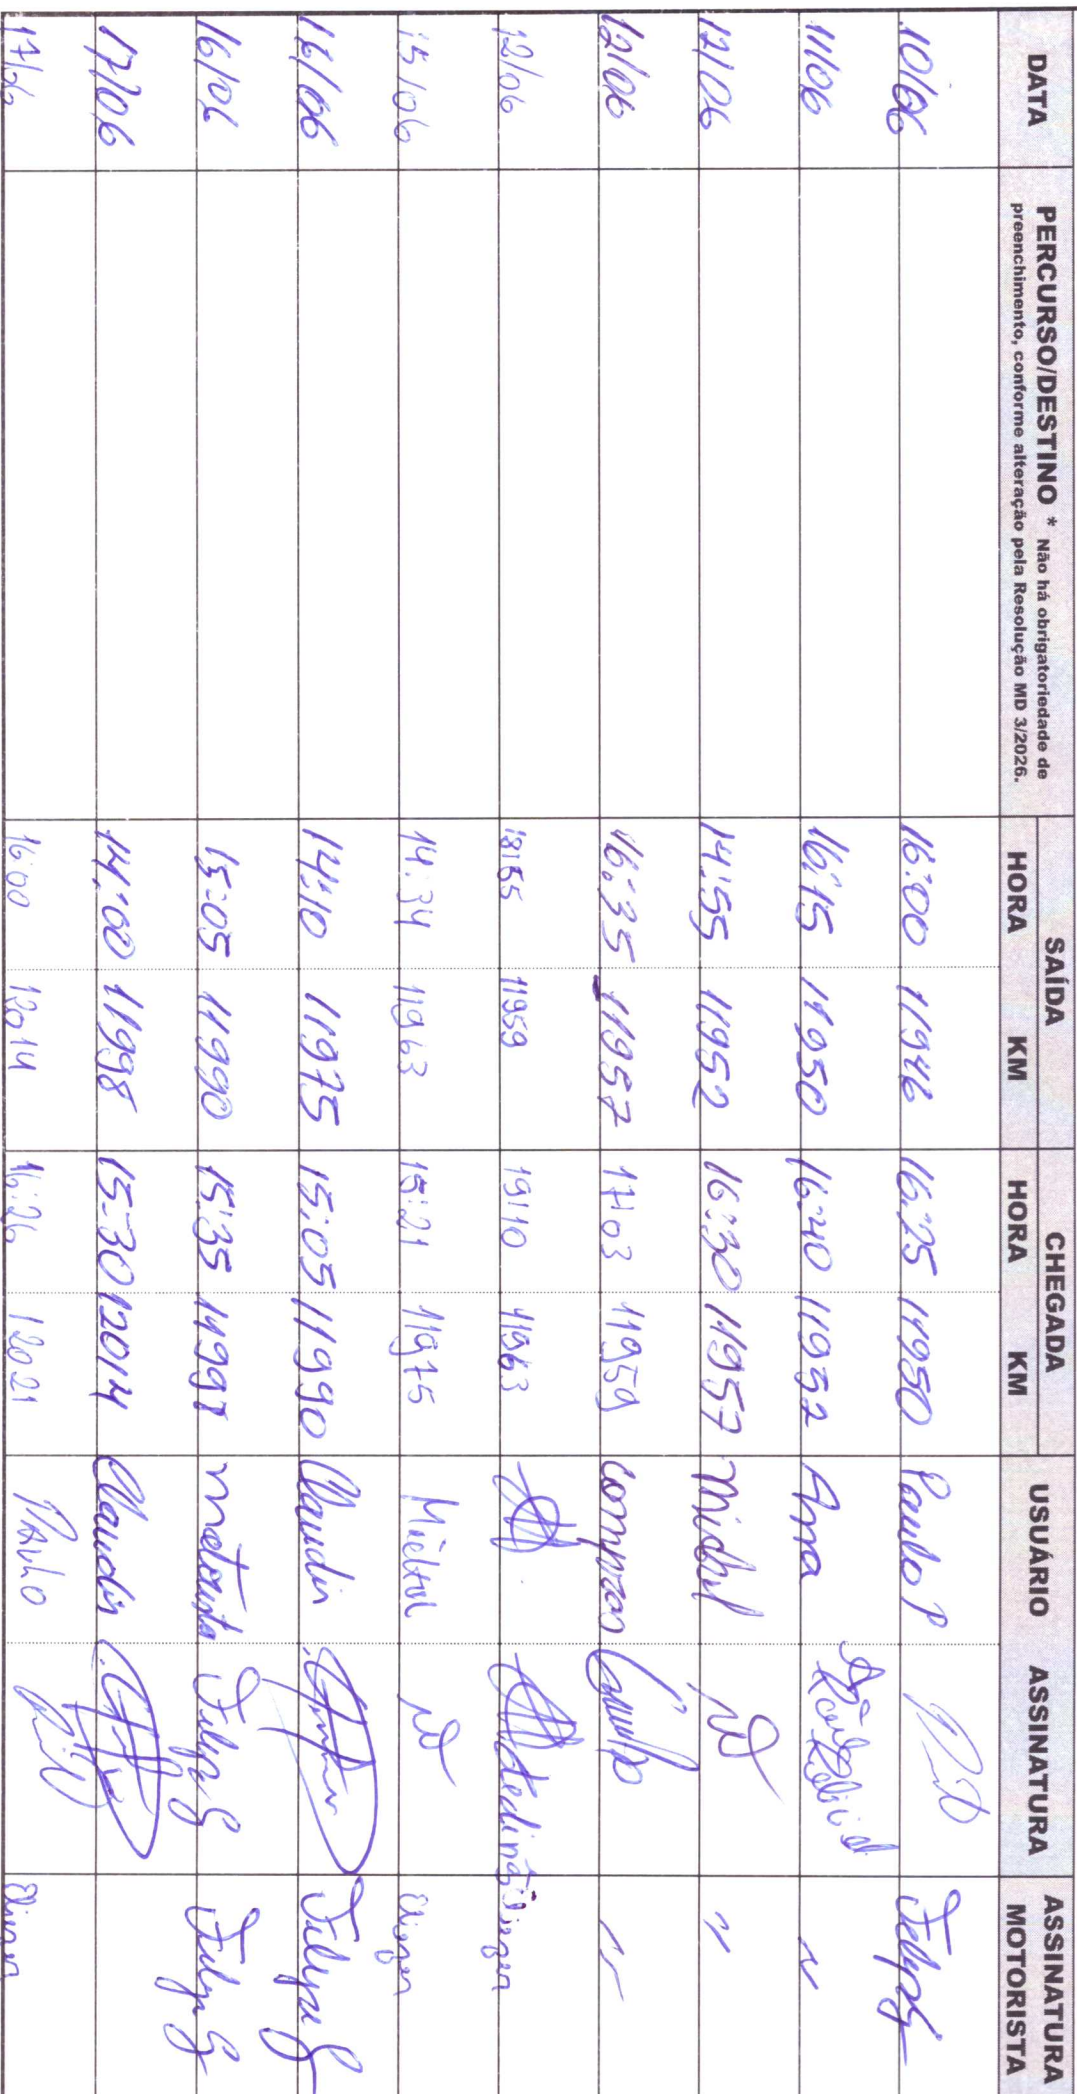 DATA PERCURSO/DESTINO * Não há obrigatoriedade de preenchimento, conforme alteração pela Resolução MD 3/2026. SAÍDA CHEGADA USUÁRIO ASSINATURA ASSINATURA MOTORISTA
HORA KM HORA KM
10/06 16:00 11946 16:25 11950 Paulo P
11/06 16:15 11950 16:40 11952 Anna "
12/06 14:55 11952 16:30 11957 "
12/06 16:35 11957 17:03 11959 compras "
12/06 18:55 11959 19:10 11963
15/06 14:34 11963 15:21 11975
16/06 14:10 11975 15:05 11990 Claudin Felype G
16/06 15:05 11990 15:35 11998 motorista Felype G Felype G
17/06 14:00 11998 15:30 12014 Claudin
17/06 16:00 12014 16:26 12021 Paulo